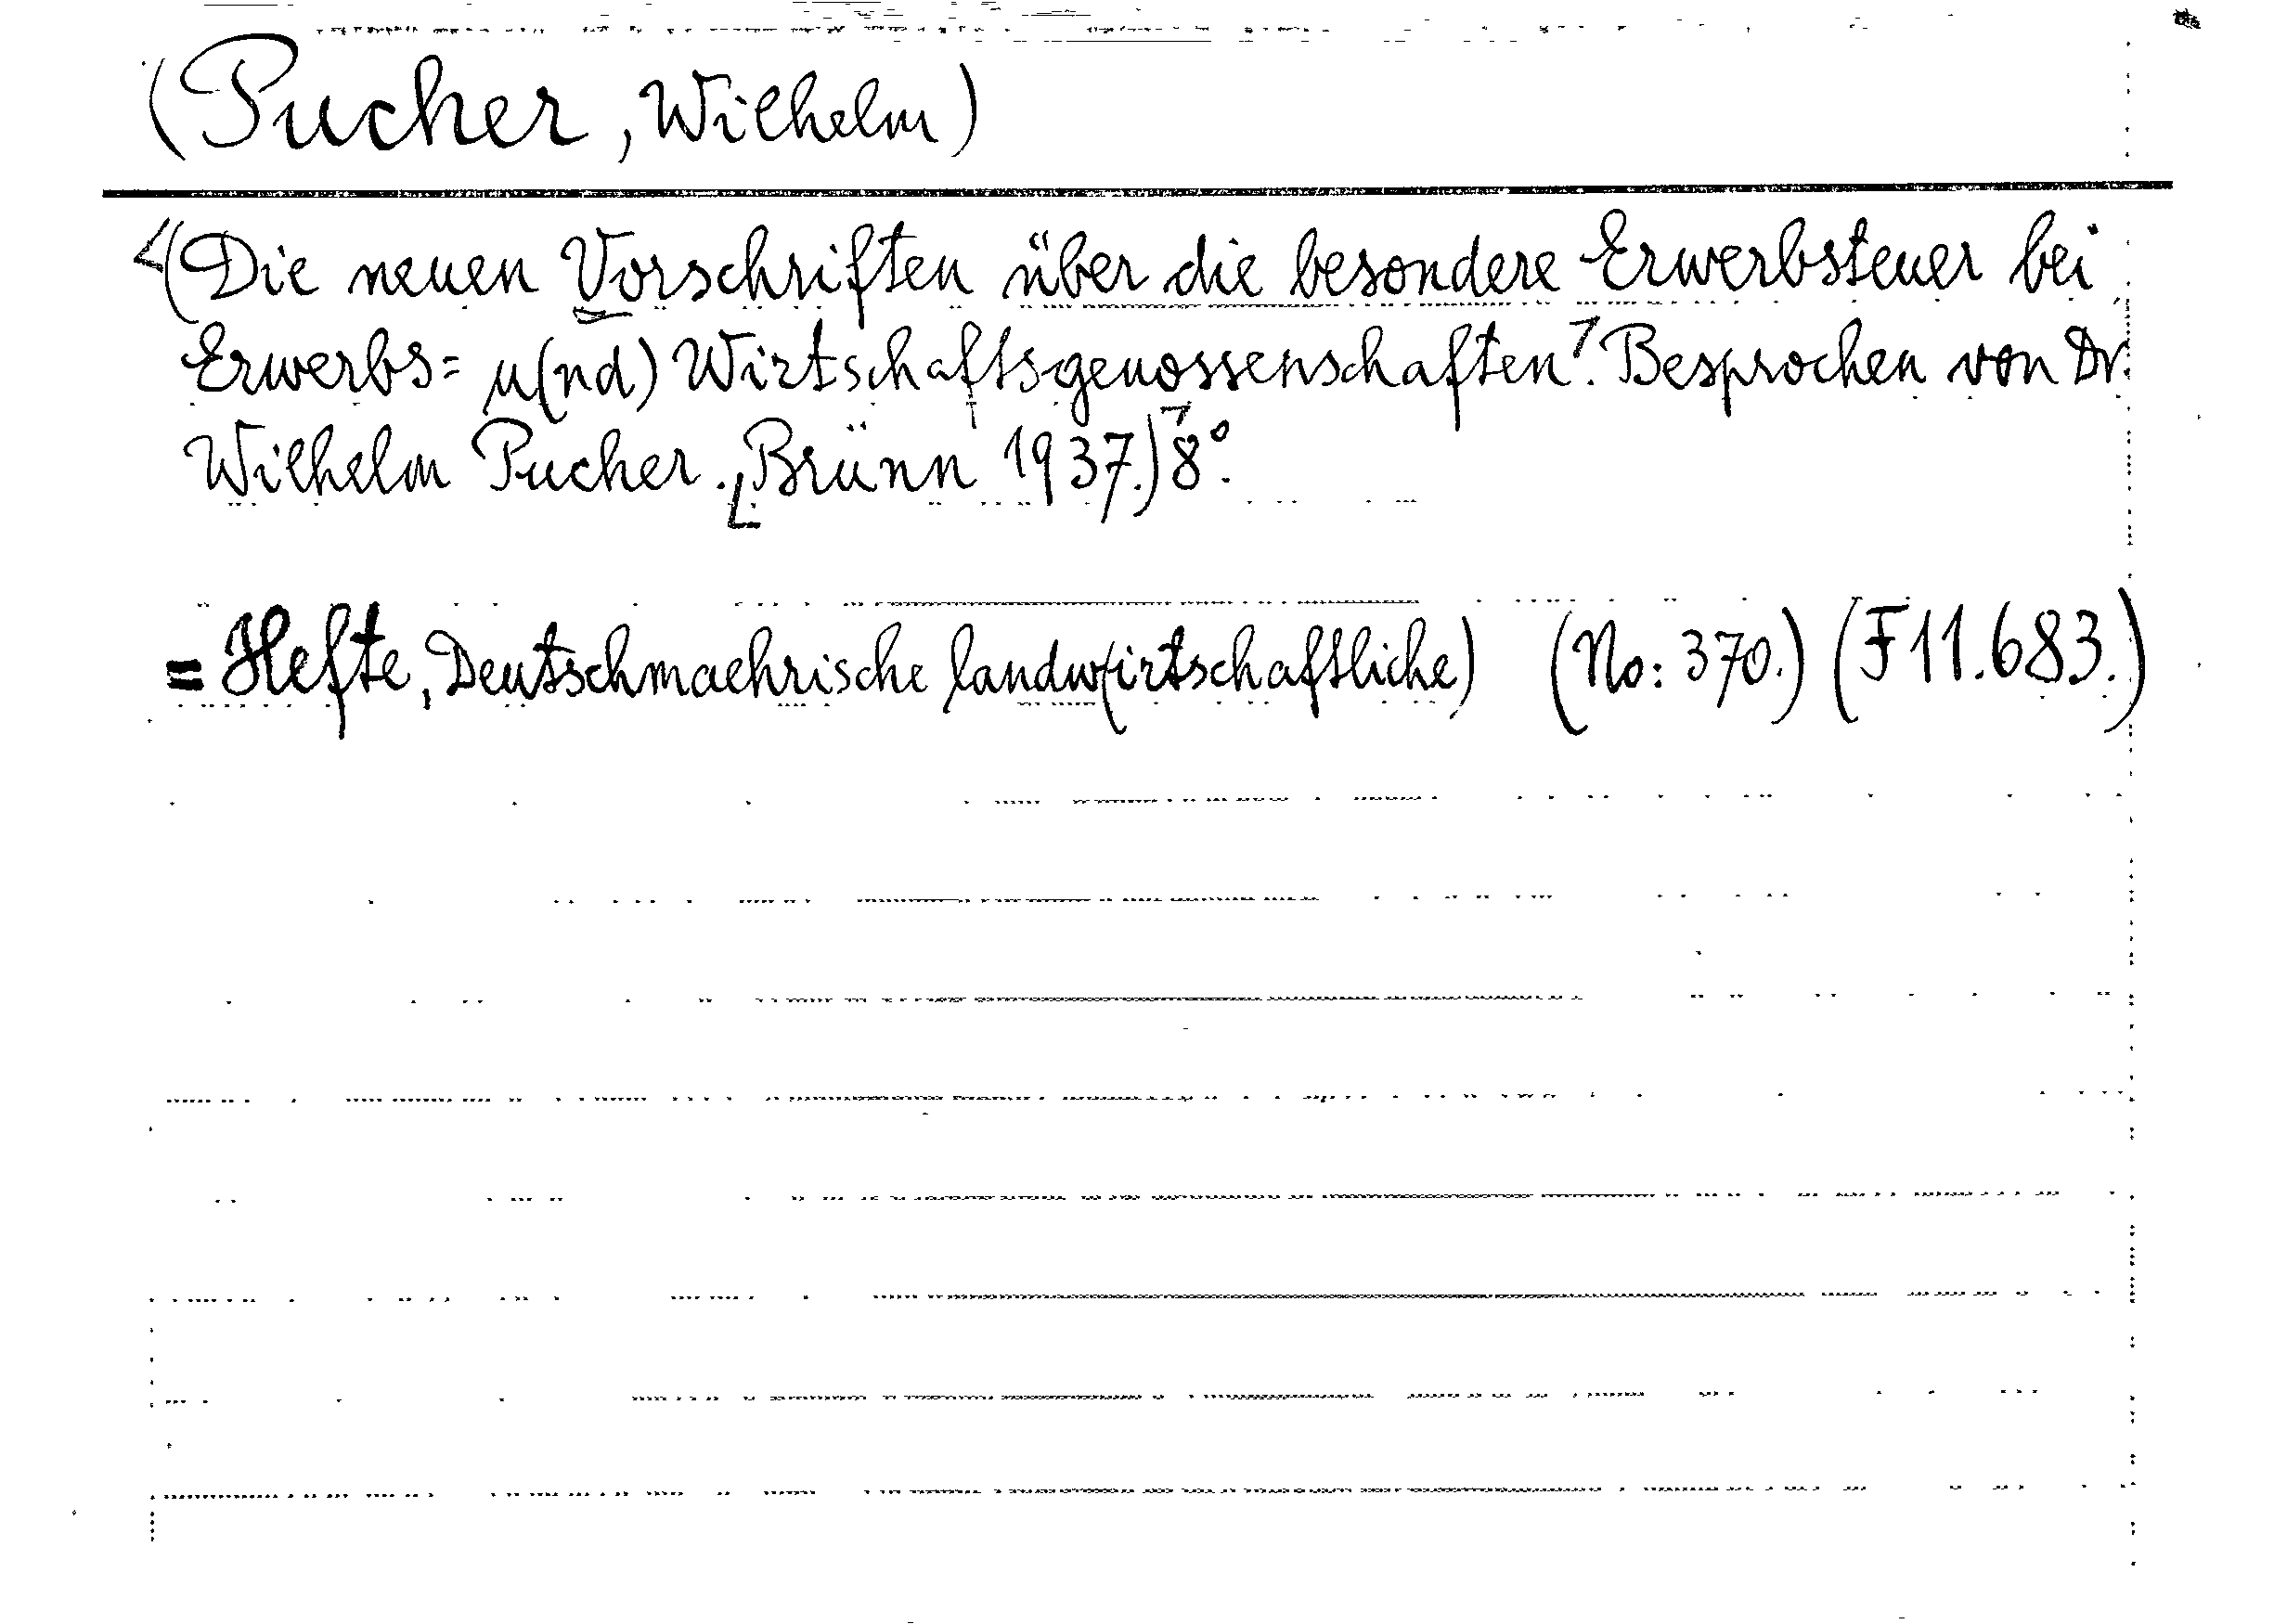 (Pucher, Wilhelm)
(Die neuen Vorschriften über die besondere Erwerbsteuer bei
Erwerbs= u(nd) Wirtschaftsgenossenschaften. Besprochen von Dr.
Wilhelm Pucher. Brünn 1937.) 8°.
= Hefte, Deutschmaehrische landw(irtschaftliche) (No: 370.) (F 11.683.)